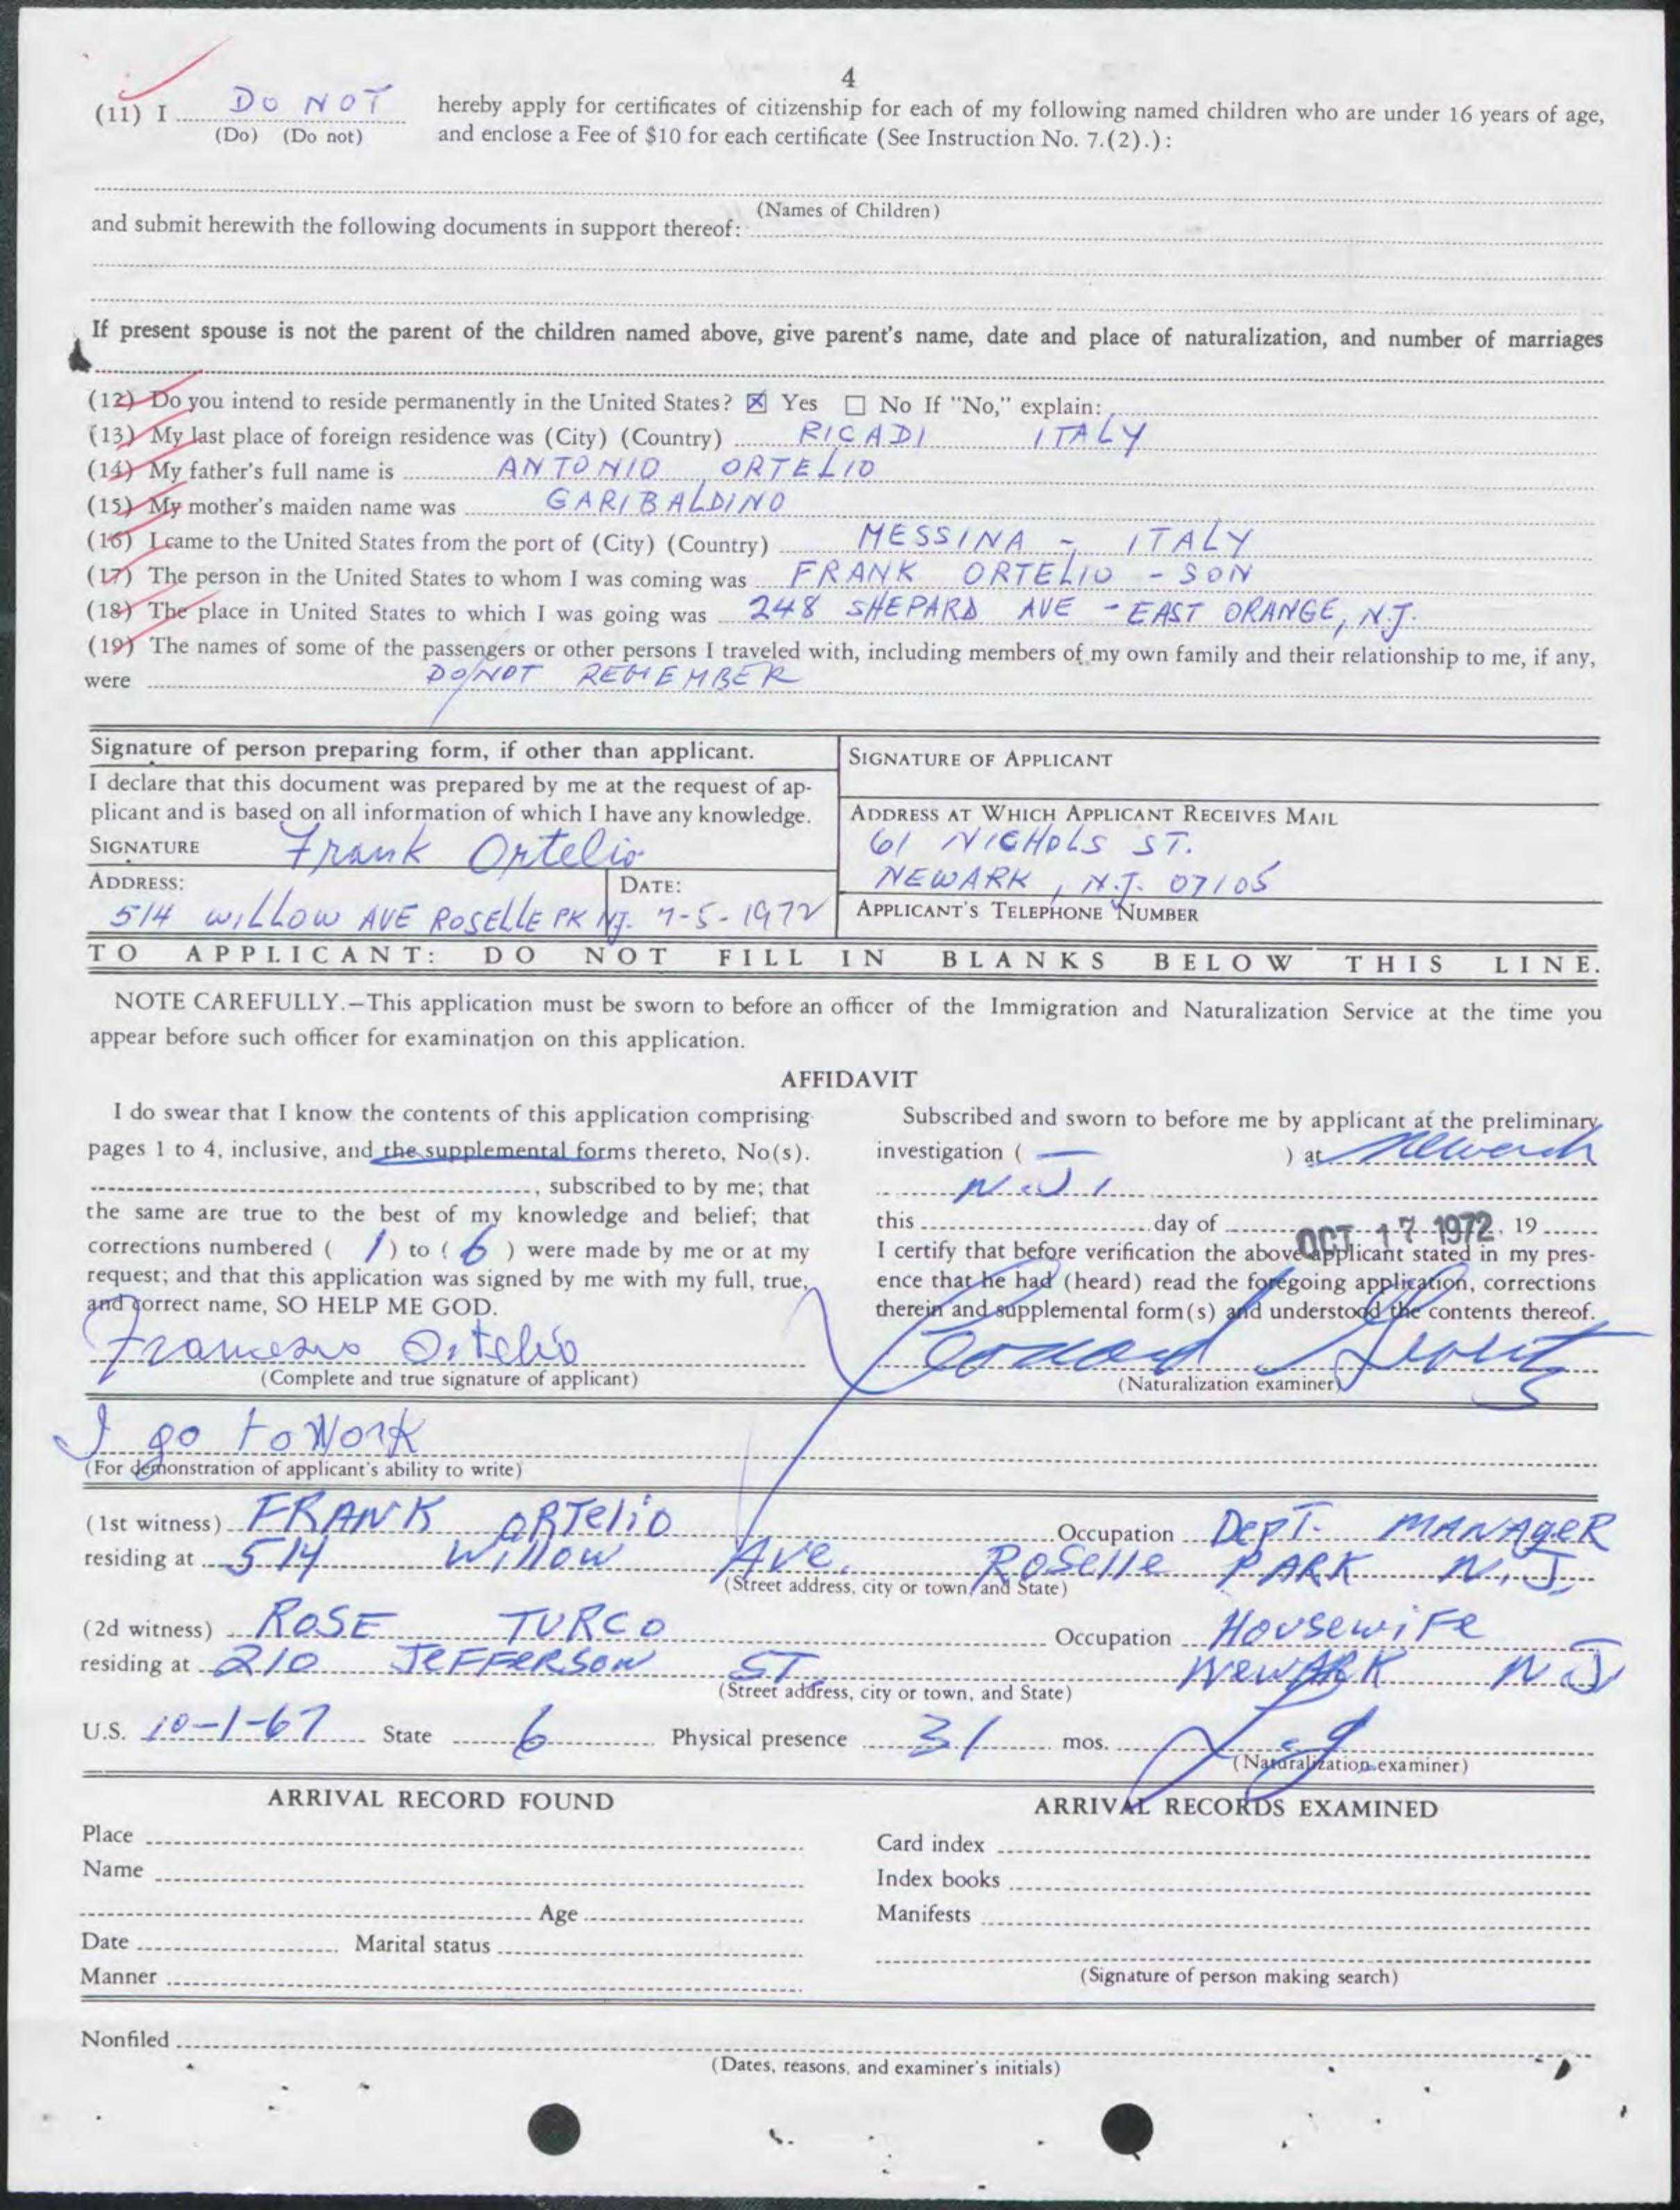 4
(11) I DO NOT hereby apply for certificates of citizenship for each of my following named children who are under 16 years of age,
(Do) (Do not) and enclose a Fee of $10 for each certificate (See Instruction No. 7.(2).):
(Names of Children)
and submit herewith the following documents in support thereof:
If present spouse is not the parent of the children named above, give parent's name, date and place of naturalization, and number of marriages
(12) Do you intend to reside permanently in the United States? ☒ Yes ☐ No If "No," explain:
(13) My last place of foreign residence was (City) (Country) RICADI ITALY
(14) My father's full name is ANTONIO ORTELIO
(15) My mother's maiden name was GARIBALDINO
(16) I came to the United States from the port of (City) (Country) MESSINA - ITALY
(17) The person in the United States to whom I was coming was FRANK ORTELIO - SON
(18) The place in United States to which I was going was 248 SHEPARD AVE - EAST ORANGE, N.J.
(19) The names of some of the passengers or other persons I traveled with, including members of my own family and their relationship to me, if any,
were DO NOT REMEMBER
Signature of person preparing form, if other than applicant.
I declare that this document was prepared by me at the request of ap-
plicant and is based on all information of which I have any knowledge.
SIGNATURE Frank Ortelio
ADDRESS: DATE:
514 WILLOW AVE ROSELLE PK NJ. 7-5-1972
SIGNATURE OF APPLICANT
ADDRESS AT WHICH APPLICANT RECEIVES MAIL
61 NICHOLS ST.
NEWARK, N.J. 07105
APPLICANT'S TELEPHONE NUMBER
TO APPLICANT: DO NOT FILL IN BLANKS BELOW THIS LINE.
NOTE CAREFULLY.—This application must be sworn to before an officer of the Immigration and Naturalization Service at the time you
appear before such officer for examination on this application.
AFFIDAVIT
I do swear that I know the contents of this application comprising
pages 1 to 4, inclusive, and the supplemental forms thereto, No(s).
, subscribed to by me; that
the same are true to the best of my knowledge and belief; that
corrections numbered ( 1 ) to ( 6 ) were made by me or at my
request; and that this application was signed by me with my full, true,
and correct name, SO HELP ME GOD.
Francesco Ortelio
(Complete and true signature of applicant)
Subscribed and sworn to before me by applicant at the preliminary
investigation ( — ) at Newark
N.J.
this day of OCT 17 1972, 19
I certify that before verification the above applicant stated in my pres-
ence that he had (heard) read the foregoing application, corrections
therein and supplemental form(s) and understood the contents thereof.
(Naturalization examiner)
I go to Work
(For demonstration of applicant's ability to write)
(1st witness) FRANK ORTeliO Occupation DepT. MANAgeR
residing at 514 Willow Ave. Roselle PARK N.J.
(Street address, city or town, and State)
(2d witness) ROSE TURCO Occupation HousewiFe
residing at 210 JeFFeRSON ST. NewARK N.J
(Street address, city or town, and State)
U.S. 10-1-67 State 6 Physical presence 31 mos.
(Naturalization examiner)
ARRIVAL RECORD FOUND
Place
Name
Age
Date Marital status
Manner
ARRIVAL RECORDS EXAMINED
Card index
Index books
Manifests
(Signature of person making search)
Nonfiled
(Dates, reasons, and examiner's initials)